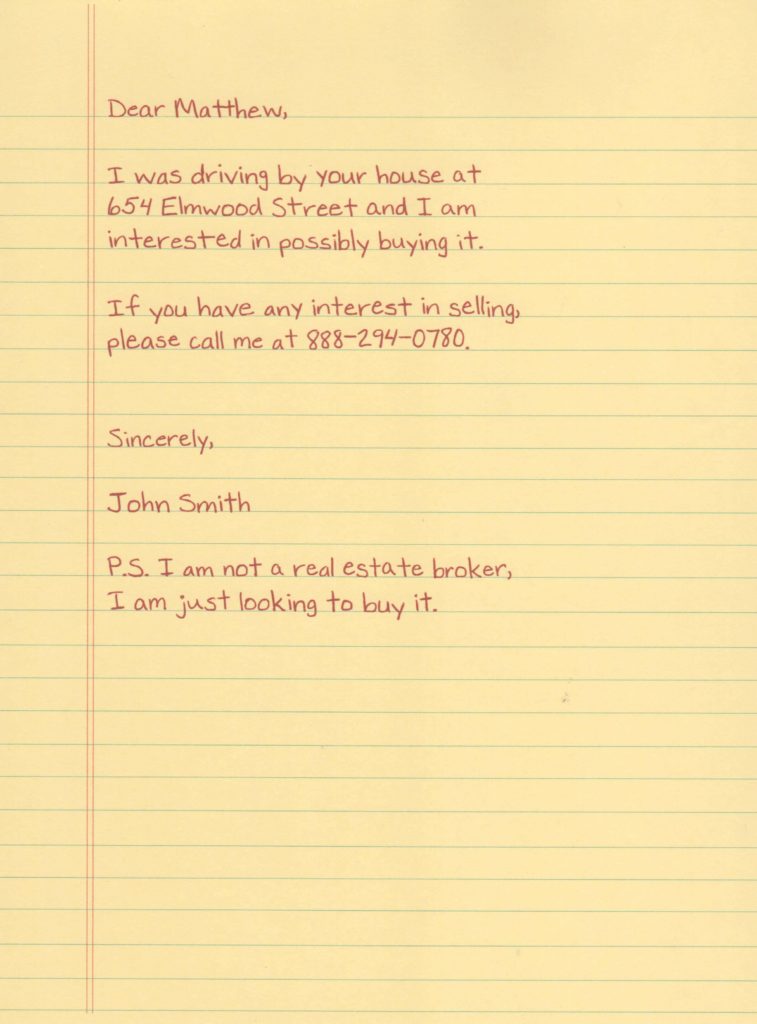 Dear Matthew,
I was driving by your house at
654 Elmwood Street and I am
interested in possibly buying it.
If you have any interest in selling,
please call me at 888-294-0780.
Sincerely,
John Smith
P.S. I am not a real estate broker,
I am just looking to buy it.